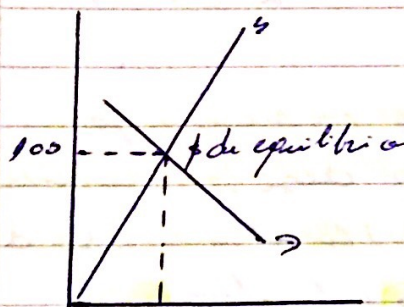 S
100 p de equilibrio
D